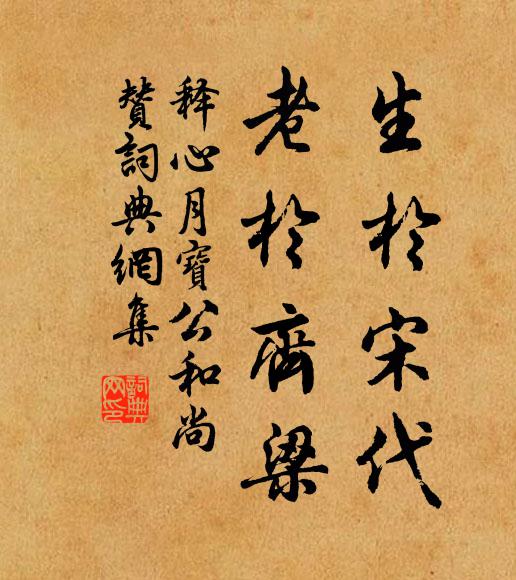 生於宋代
老於齊梁
释心月寶公和尚
贊詞典網集
詞典网印